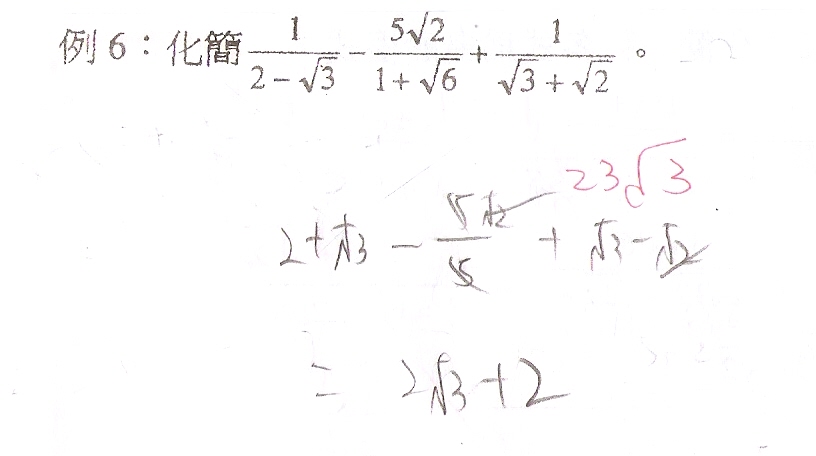 例 6：化簡 1/(2-√3) - 5√2/(1+√6) + 1/(√3+√2)。
23√3
2+√3 - 5√2/5 + √3-√2
= 2√3+2